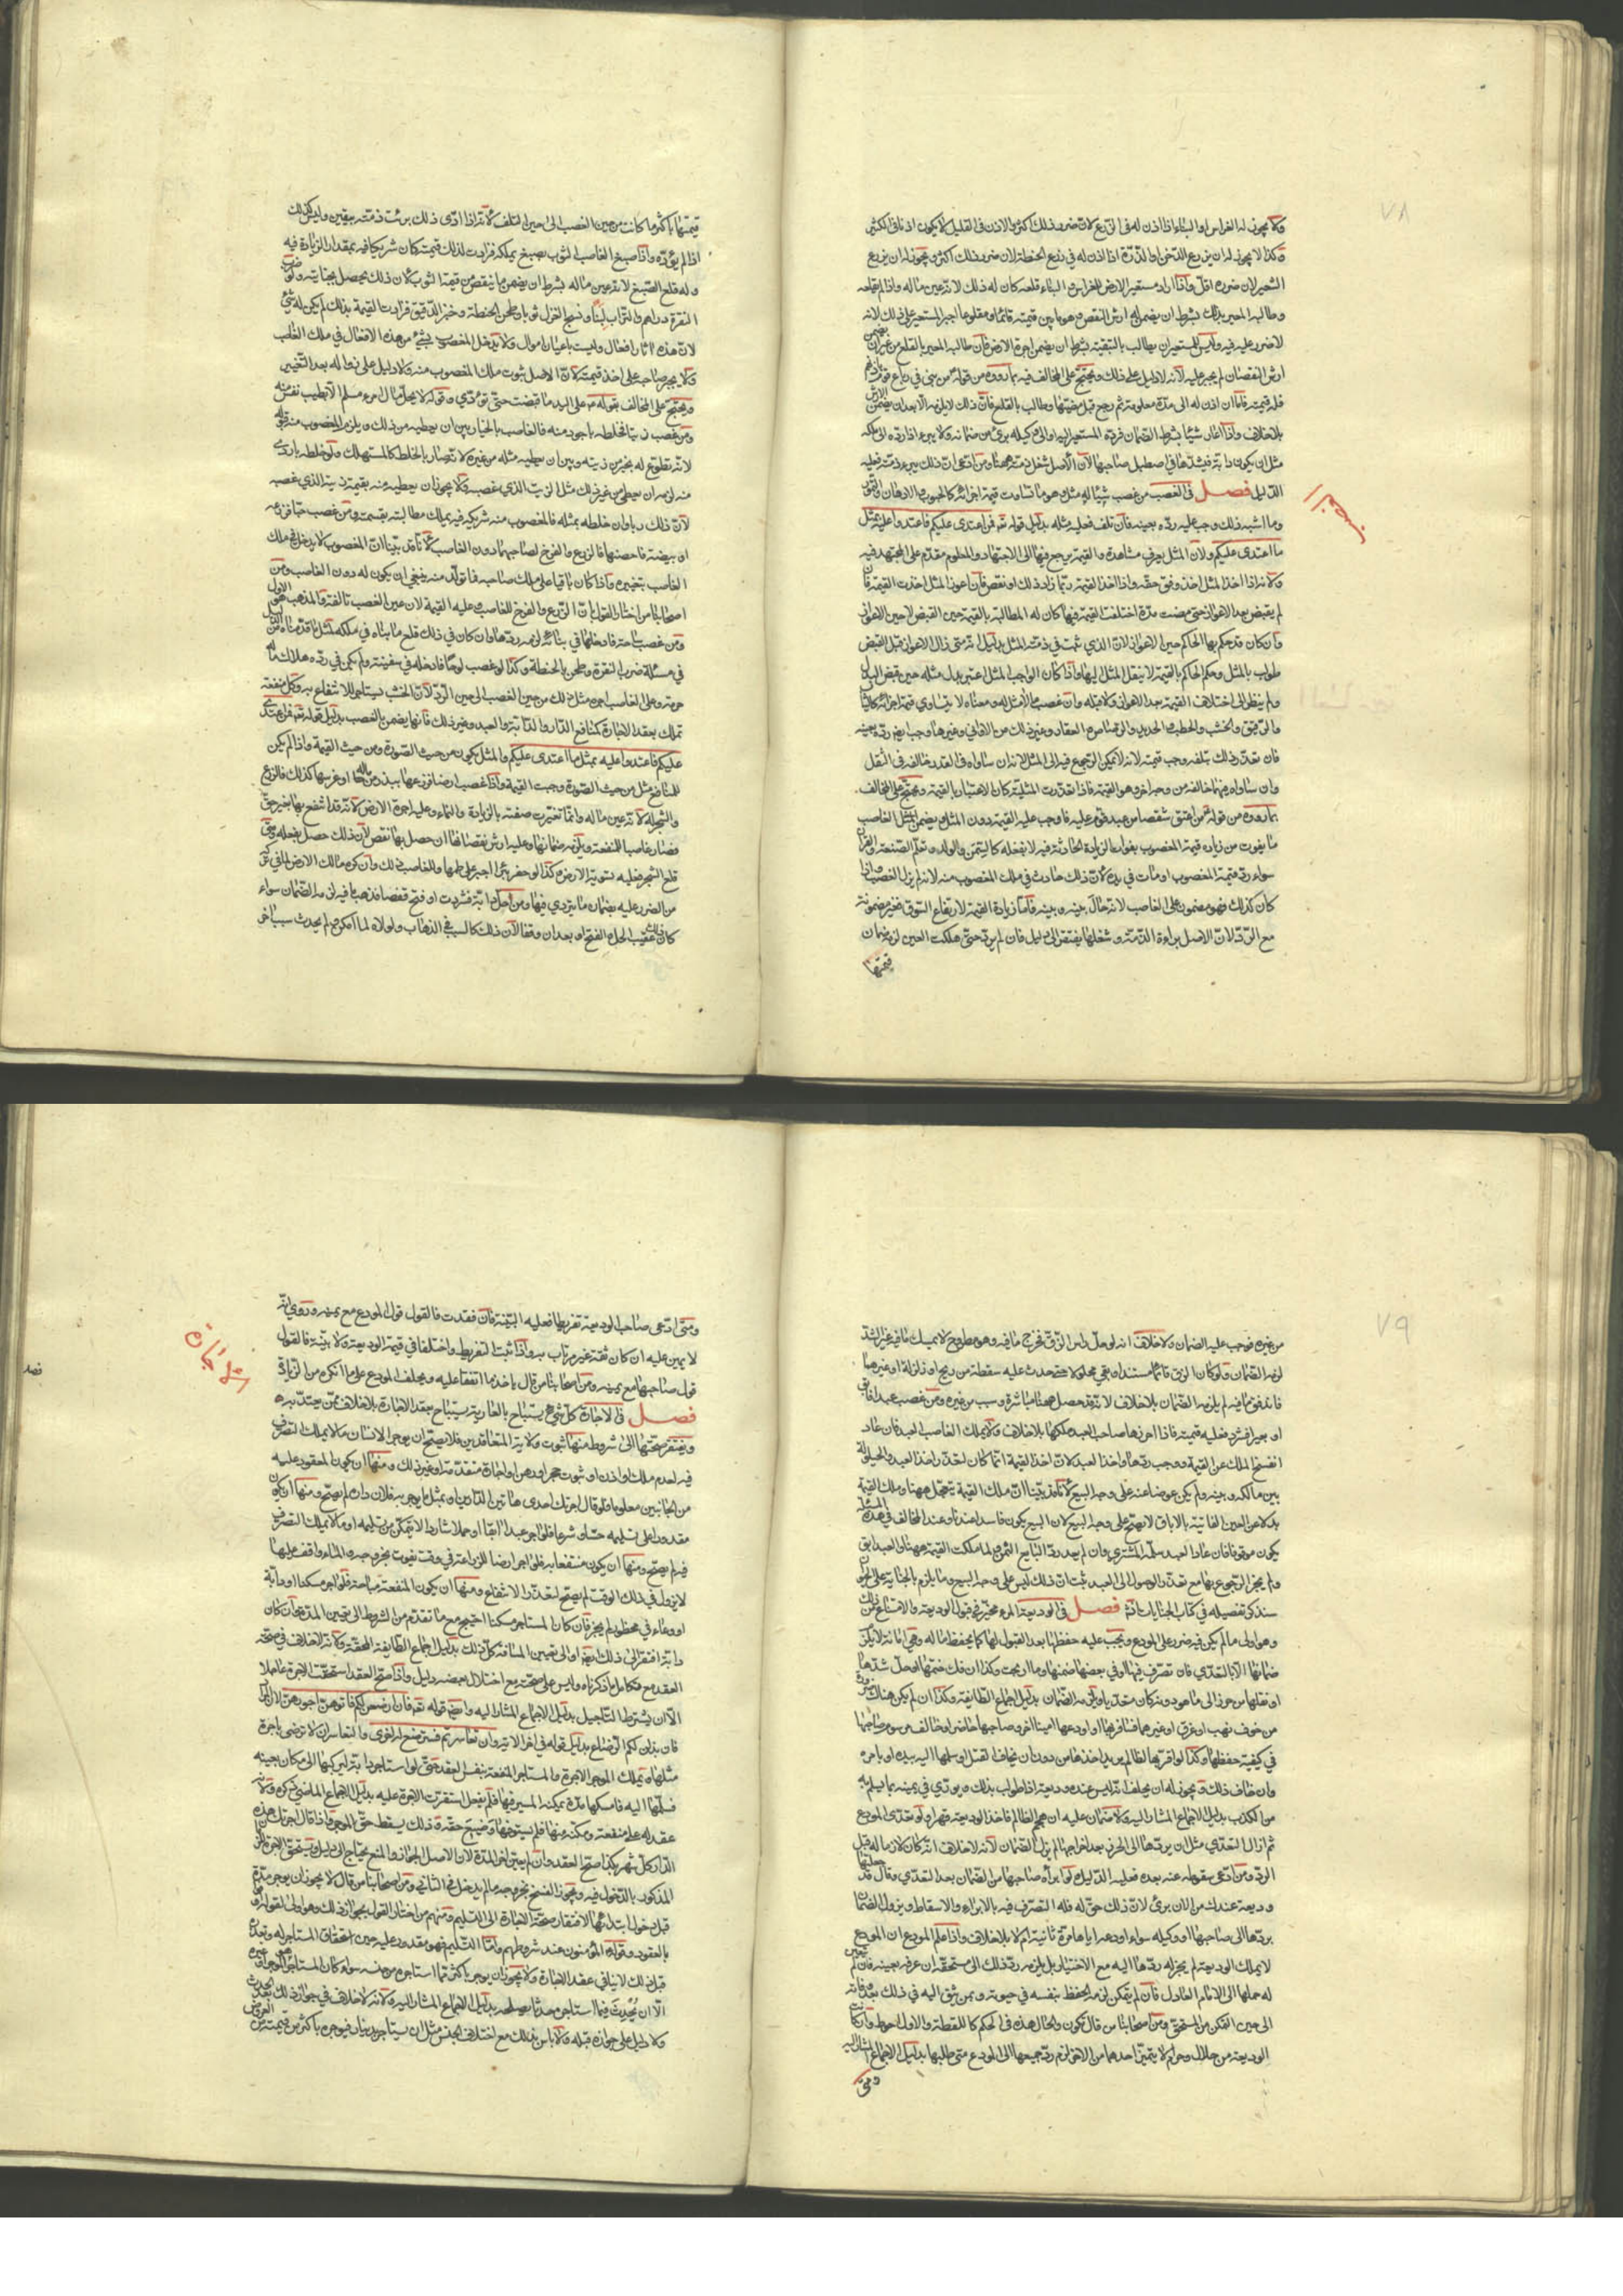 ٧٨
ولا يجوز له الغراس او البناء اذا اذن له في الزرع لان ضرر ذلك اكثر والاذن في القليل لا يكون اذنا في الكثير
وكذا لا يجوز له ان يزرع الدخن او الذرة اذا اذن له في زرع الحنطة لان ضرر ذلك اكثر ويجوز له ان يزرع
الشعير لان ضرره اقل واذا اراد مستعير الارض للغراس والبناء قلعه كان له ذلك لانه عين ماله واذا لم يقلعه
وطالبه المعير بذلك بشرط ان يضمن له ارش النقص وهو ما بين قيمته قائما ومقلوعا اجبر المستعير على ذلك لانه
لا ضرر عليه فيه وليس للمستعير ان يطالب بالتبقية بشرط ان يضمن اجرة الارض فان طالبه المعير بالقلع من غير ان يضمن
ارش النقصان لم يجبر عليه لانه لا دليل على ذلك ويحتج على المخالف فيه بما رووه من قوله من بنى في رباع قوم باذنهم
فله قيمته فاما ان اذن له الى مدة معلومة ثم رجع قبل مضيها وطالب بالقلع فان ذلك لا يلزمه الا بعد ان يضمن الارش
بلا خلاف واذا اعار شيئا بشرط الضمان فرده المستعير اليه او الى وكيله برئ من ضمانه ولا يبرء اذا رده الى ملكه
مثل ان يكون دابة فيشدها في اصطبل صاحبها لان الاصل شغل ذمته ههنا ومن ادعى ان ذلك يبرء ذمته فعليه
الدليل فصل في الغصب من غصب شيئا له مثل وهو ما تساوت قيمة اجزائه كالحبوب والادهان والتمور
وما اشبه ذلك وجب عليه رده بعينه فان تلف فعليه مثله بدليل قوله تعالى فمن اعتدى عليكم فاعتدوا عليه بمثل
ما اعتدى عليكم ولان المثل يعرف مشاهدة والقيمة يرجع فيها الى الاجتهاد والمعلوم مقدم على المجتهد فيه
ولانه اذا اخذ المثل اخذ وفق حقه واذا اخذ القيمة ربما زاد ذلك او نقص فان اعوز المثل اخذت القيمة فان
لم يقبض بعد الاعواز حتى مضت مدة اختلفت القيمة فيها كان له المطالبة بالقيمة حين القبض لا حين الاعواز
وان كان قد حكم بها الحاكم حين الاعواز لان الذي ثبت في ذمته المثل بدليل انه متى زال الاعواز قبل القبض
طولب بالمثل وحكم الحاكم بالقيمة لا ينقل المثل اليها واذا كان الواجب المثل اعتبر بدل مثله حين قبض البدل
ولم ينظر الى اختلاف القيمة بعد الاعواز ولا قبله وان غصب ما لا مثل له ومعناه لا يتساوى قيمة اجزائه كالثياب
والرقيق والخشب والحطب والحديد والرصاص والعقار وغير ذلك من الاواني وغيرها وجب ايضا رده بعينه
فان تعذر ذلك بتلفه وجب قيمته لانه لا يمكن الرجوع فيه الى المثل لانه ان ساواه في القدر خالفه في الثقل
وان ساواه فيهما خالفه من وجه اخر وهو القيمة فاذا تعذرت المثلية كان الاعتبار بالقيمة ويحتج على المخالف
بما رووه من قوله من اعتق شقصا من عبد قوم عليه فاوجب عليه القيمة دون المثل ويضمن الغاصب
ما يفوت من زيادة قيمة المغصوب بفوات الزيادة الحادثة فيه لا بفعله كالسمن والولد وتعلم الصنعة والقرآن
سواء رد قيمة المغصوب او مات في يده لان ذلك حادث في ملك المغصوب منه لانه لم يزل بالغصب واذا
كان كذلك فهو مضمون على الغاصب لانه حال بينه وبينه فاما زيادة القيمة لارتفاع السوق فغير مضمونة
مع الرد لان الاصل براءة الذمة وشغلها يفتقر الى دليل فان لم يرد حتى هلكت العين لزمه ضمان
قيمتها
قيمتها باكثر ما كانت من حين الغصب الى حين التلف لانه اذا ادى ذلك برئت ذمته بيقين وليس كذلك
اذا لم يؤده واذا صبغ الغاصب الثوب بصبغ يملكه فزادت لذلك قيمته كان شريكا فيه بمقدار الزيادة فيه
وله قلع الصبغ لانه عين ماله بشرط ان يضمن ما ينقص من قيمة الثوب لان ذلك يحصل بجنايته ولو ضرب
النقرة دراهم والتراب لبنا ونسج الغزل ثوبا وطحن الحنطة وخبز الدقيق فزادت القيمة بذلك لم يكن له شئ
لان هذه آثار افعال وليست باعيان اموال ولا يدخل المغصوب بشئ من هذه الافعال في ملك الغاصب
ولا يجبر صاحبه على اخذ قيمته لان الاصل ثبوت ملك المغصوب منه ولا دليل على زواله بعد التغيير
ويحتج على المخالف بقوله على اليد ما قبضت حتى تؤدي وقوله لا يحل مال امرء مسلم الا بطيب نفس منه
ومن غصب زيتا فخلطه باجود منه فالغاصب بالخيار بين ان يعطيه من ذلك ويلزم المغصوب منه قبوله
لانه تطوع له بخير من زيته وبين ان يعطيه مثله من غيره لانه صار بالخلط كالمستهلك ولو خلطه باردى
منه لزمه ان يعطي من غير ذلك مثل الزيت الذي غصبه ولا يجوز ان يعطيه منه بقيمة زيته الذي غصبه
لان ذلك ربا وان خلطه بمثله فالمغصوب منه شريكه فيه يملك مطالبته بقسمته ومن غصب حبا فزرعه
او بيضة فاحضنها فالزرع والفرخ لصاحبهما دون الغاصب لانا قد بينا ان المغصوب لا يدخل في ملك
الغاصب بتغييره واذا كان باقيا على ملك صاحبه فما تولد منه ينبغي ان يكون له دون الغاصب ومن
اصحابنا من اختار القول بان الزرع والفرخ للغاصب وعليه القيمة لان عين الغصب تالفة والمذهب هو الاول
ومن غصب ساحة فادخلها في بنائه لزمه ردها وان كان في ذلك قلع ما بناه في ملكه لمثل ما قدمناه من الدليل
في مسئلة ضرب النقرة وطحن الحنطة وكذا لو غصب لوحا فادخله في سفينته ولم يكن في رده هلاك ماله
حرمة وعلى الغاصب اجرة مثل ذلك من حين الغصب الى حين الرد لان الخشب يستاجر للانتفاع به وكل منفعة
تملك بعقد الاجارة كمنافع الدار والدابة والعبد وغير ذلك فانها يضمن بالغصب بدليل قوله تعالى فمن اعتدى
عليكم فاعتدوا عليه بمثل ما اعتدى عليكم والمثل يكون من حيث الصورة ومن حيث القيمة واذا لم يكن
للمنافع مثل من حيث الصورة وجبت القيمة واذا غصب ارضا فزرعها ببذر من ماله او غرسها كذلك فالزرع
والشجر له لانه عين ماله وانما تغيرت صفته بالزيادة والنماء وعليه اجرة الارض لانه قد انتفع بها بغير حق
فصار غاصبا للمنفعة ويلزمه ضمانها وعليه ارش نقصانها ان حصل بها نقص لان ذلك حصل بفعله ومتى
قلع الشجر فعليه تسوية الارض وكذا لو حفر بئرا اجبر على طمها وللغاصب ذلك وان كره مالك الارض لما في تركه
من الضرر عليه بضمان ما يتردى فيها ومن حل دابة فشردت او فتح قفصا فذهب ما فيه لزمه الضمان سواء
كان ذلك عقيب الحل او الفتح او بعد ان وقفا لان ذلك كالسبب في الذهاب ولولاه لما امكن ولم يحدث سبب اخر
٧٩
من غيره فوجب عليه الضمان ولا خلاف انه لو حل راس الزق فخرج ما فيه وهو مطروح لا يمسك ما فيه غير الشد
لزمه الضمان ولو كان الزق قائما مستندا وبقي محلولا حتى حدث عليه سقطة من ريح او زلزلة او غيرهما
فاندفق ما فيه لم يلزمه الضمان بلا خلاف لانه قد حصل ههنا مباشرة وسبب من غيره ومن غصب عبدا فابق
او بعيرا فشرد فعليه قيمته فاذا اخذها صاحب العبد ملكها بلا خلاف ولا يملك الغاصب العبد فان عاد
انفسخ الملك عن القيمة ووجب ردها واخذ العبد لانه اخذ القيمة انما كان لتعذر اخذ العبد والحيلولة
بين مالكه وبينه ولم يكن عوضا عنه على وجه البيع لانا قد بينا ان ملك القيمة يتعجل ههنا وملك القيمة
بدلا عن العين الفائتة بالاباق لا يصح على وجه البيع لان البيع يكون فاسدا عندنا وعند المخالف في هذه المسئلة
يكون موقوفا فان عاد العبد سلمه المشتري وان لم يعد رد البايع الثمن ولما ملكت القيمة ههنا والعبد آبق
ولم يجز الرجوع بها مع تعذر الوصول الى العبد ثبت ان ذلك ليس على وجه البيع وما يلزم بالجناية على الحر
سنذكر تفصيله في كتاب الجنايات فصل في الوديعة المرء مخير في قبول الوديعة والامتناع من ذلك
وهو اولى ما لم يكن فيه ضرر على المودع ويجب عليه حفظها بعد القبول لها كما يحفظ ماله وهي امانة لا يلزم
ضمانها الا بالتعدي فان تصرف فيها او في بعضها ضمنها وما اربحت وكذا ان فك ختمها او حل شدها
او نقلها من حرز الى ما هو دونه كان متعديا ويلزمه الضمان بدليل اجماع الطايفة وكذا ان لم يكن هناك ضرورة
من خوف نهب او غرق او غيرهما فسافر بها او اودعها امينا اخر وصاحبها حاضر او خالف مرسوم صاحبها
في كيفية حفظها وكذا لو اقر بها لظالم يريد اخذها من دون ان يخاف القتل او سلمها اليه بيده او بامره
وان خاف ذلك ويجوز له ان يحلف انه ليس عنده وديعة اذا طولب بذلك ويوري في يمينه بما يسلم به
من الكذب بدليل الاجماع المشار اليه ولا ضمان عليه ان هجم الظالم فاخذ الوديعة قهرا ولو تعدى المودع
ثم ازال التعدي مثل ان يردها الى الحرز بعد اخراجها لم يزل الضمان لانه لا خلاف انه كان لازما له قبل
الرد ومن ادعى سقوطه عنه بعده فعليه الدليل ولو ابرأه صاحبها من الضمان بعد التعدي وقال قد جعلتها
وديعة عندك من الان برئ لان ذلك حق له فله التصرف فيه بالابراء والاسقاط ويزول الضمان
بردها الى صاحبها او وكيله سواء اودعه اياها مرة ثانية ام لا بلا خلاف واذا علم المودع ان المودع
لا يملك الوديعة لم يجز له ردها اليه مع الاختيار بل يلزمه رد ذلك الى مستحقه ان عرفه بعينه فان لم يتعين
له حملها الى الامام العادل فان لم يتمكن لزمه الحفظ بنفسه في حيوته وبمن يثق اليه في ذلك بعد وفاته
الى حين التمكن من المستحق ومن اصحابنا من قال تكون والحال هذه في الحكم كاللقطة والاول احوط وان كانت
الوديعة من حلال وحرام لا يتميز احدهما من الاخر لزم رد جميعها الى المودع متى طلبها بدليل الاجماع المشار اليه
ومتى
ومتى ادعى صاحب الوديعة تفريطا فعليه البينة فان فقدت فالقول قول المودع مع يمينه وروي انه
لا يمين عليه ان كان ثقة غير مرتاب به واذا ثبت التفريط واختلفا في قيمة الوديعة ولا بينة فالقول
قول صاحبها مع يمينه ومن اصحابنا من قال ياخذ ما اتفقا عليه ويحلف المودع على ما انكره من الزيادة
فصل في الاجارة كل شئ يستباح بالعارية يستباح بعقد الاجارة بلا خلاف ممن يعتد به
ويفتقر صحتها الى شروط منها ثبوت ولاية المتعاقدين فلا يصح ان يوجر الانسان ما لا يملك التصرف
فيه لعدم ملك او اذن او ثبوت حجر او رهن او اجارة متقدمة او غير ذلك ومنها ان يكون المعقود عليه
من الجانبين معلوما فلو قال اجرتك احدى هاتين الدارين او بمثل ما يوجر به فلان داره لم يصح ومنها ان يكون
مقدورا على تسليمه حسا وشرعا فلو اجر عبدا آبقا او جملا شاردا لا يتمكن من تسليمه او ما لا يملك التصرف
فيه لم يصح ومنها ان يكون منتفعا به فلو اجر ارضا للزراعة في وقت يفوت بخروجه والماء واقف عليها
لا يزول في ذلك الوقت لم يصح لتعذر الانتفاع ومنها ان يكون المنفعة مباحة فلو اجر مسكنا او دابة
او وعاء في محظور لم يجز فان كان المستاجر مسكنا احتيج مع ما تقدم من الشروط الى تعيين المدة وان كان
دابة افتقر الى ذلك ايضا او الى تعيين المسافة كل ذلك بدليل اجماع الطايفة المحقة ولانه لا خلاف في صحة
العقد مع تكامل ما ذكرناه وليس على صحته مع اختلال بعضه دليل واذا صح العقد استحقت الاجرة عاجلا
الا ان يشترط التاجيل بدليل الاجماع المشار اليه وايضا قوله تعالى فان ارضعن لكم فاتوهن اجورهن لان المراد
فان بذلن لكم الرضاع بدليل قوله في اخر الاية وان تعاسرتم فسترضع له اخرى والتعاسر ان لا ترضى باجرة
مثلها ويملك الموجر الاجرة والمستاجر المنفعة بنفس العقد حتى لو استاجر دابة ليركبها الى مكان بعينه
فسلمها اليه فامسكها مدة يمكنه المسير فيها فلم يفعل استقرت الاجرة عليه بدليل الاجماع الماضي ذكره ولانه
عقد له على منفعته ومكنه منها فلم يستوفها وضيع حقه وذلك لا يسقط حق الموجر واذا قال اجرتك هذه
الدار كل شهر بكذا صح العقد وان لم يعين اخر المدة لان الاصل الجواز والمنع يحتاج الى دليل ويستحق الاجرة للزمان
المذكور بالدخول فيه ويجوز الفسخ بخروجه ما لم يدخل في الثاني ومن اصحابنا من قال لا يجوز ان يوجر مدة
قبل دخول ابتدائها لافتقار صحة الاجارة الى التسليم ومنهم من اختار القول بجواز ذلك وهو اولى لقوله اوفوا
بالعقود وقوله المؤمنون عند شروطهم واما التسليم فهو مقدور عليه حين استحقاق المستاجر له وتعذره
قبل ذلك لا ينافي عقد الاجارة ولا يجوز ان يوجر باكثر مما استاجره من جنسه سواء كان المستاجر هو الموجر او غيره
الا ان يحدث فيما استاجره حدثا يصلحه بدليل الاجماع المشار اليه ولانه لا خلاف في جواز ذلك بعد الحدث
ولا دليل على جوازه قبله ولا باس بذلك مع اختلاف الجنس مثل ان يستاجره بدينار فيوجره باكثر من قيمته من العروض